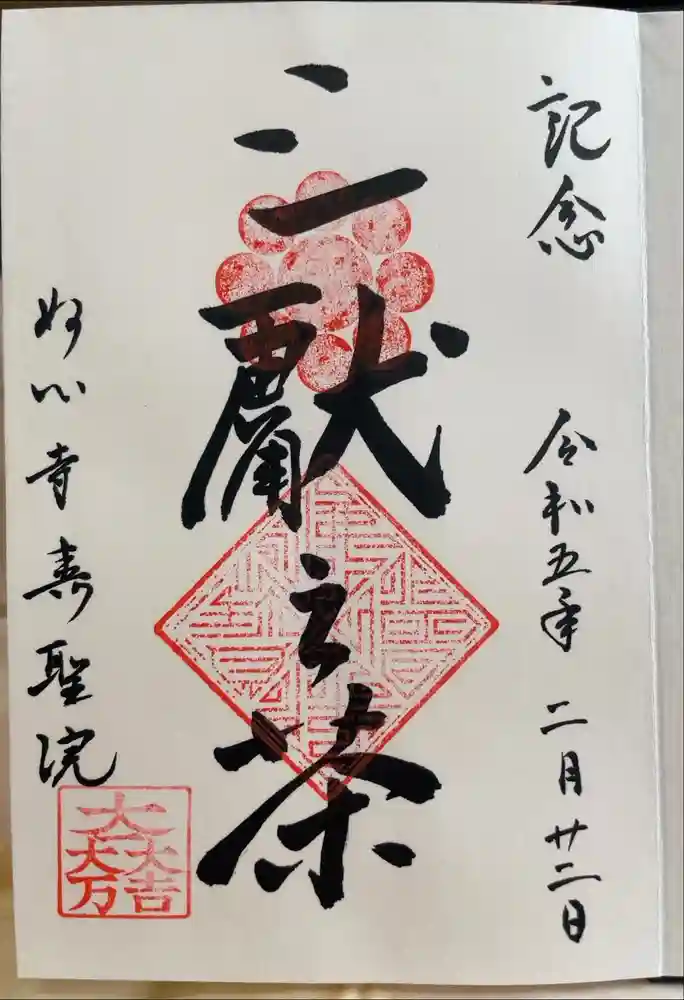 記念 令和五年 二月廿二日
三獻之茶
妙心寺 寿聖院
大一大万大吉